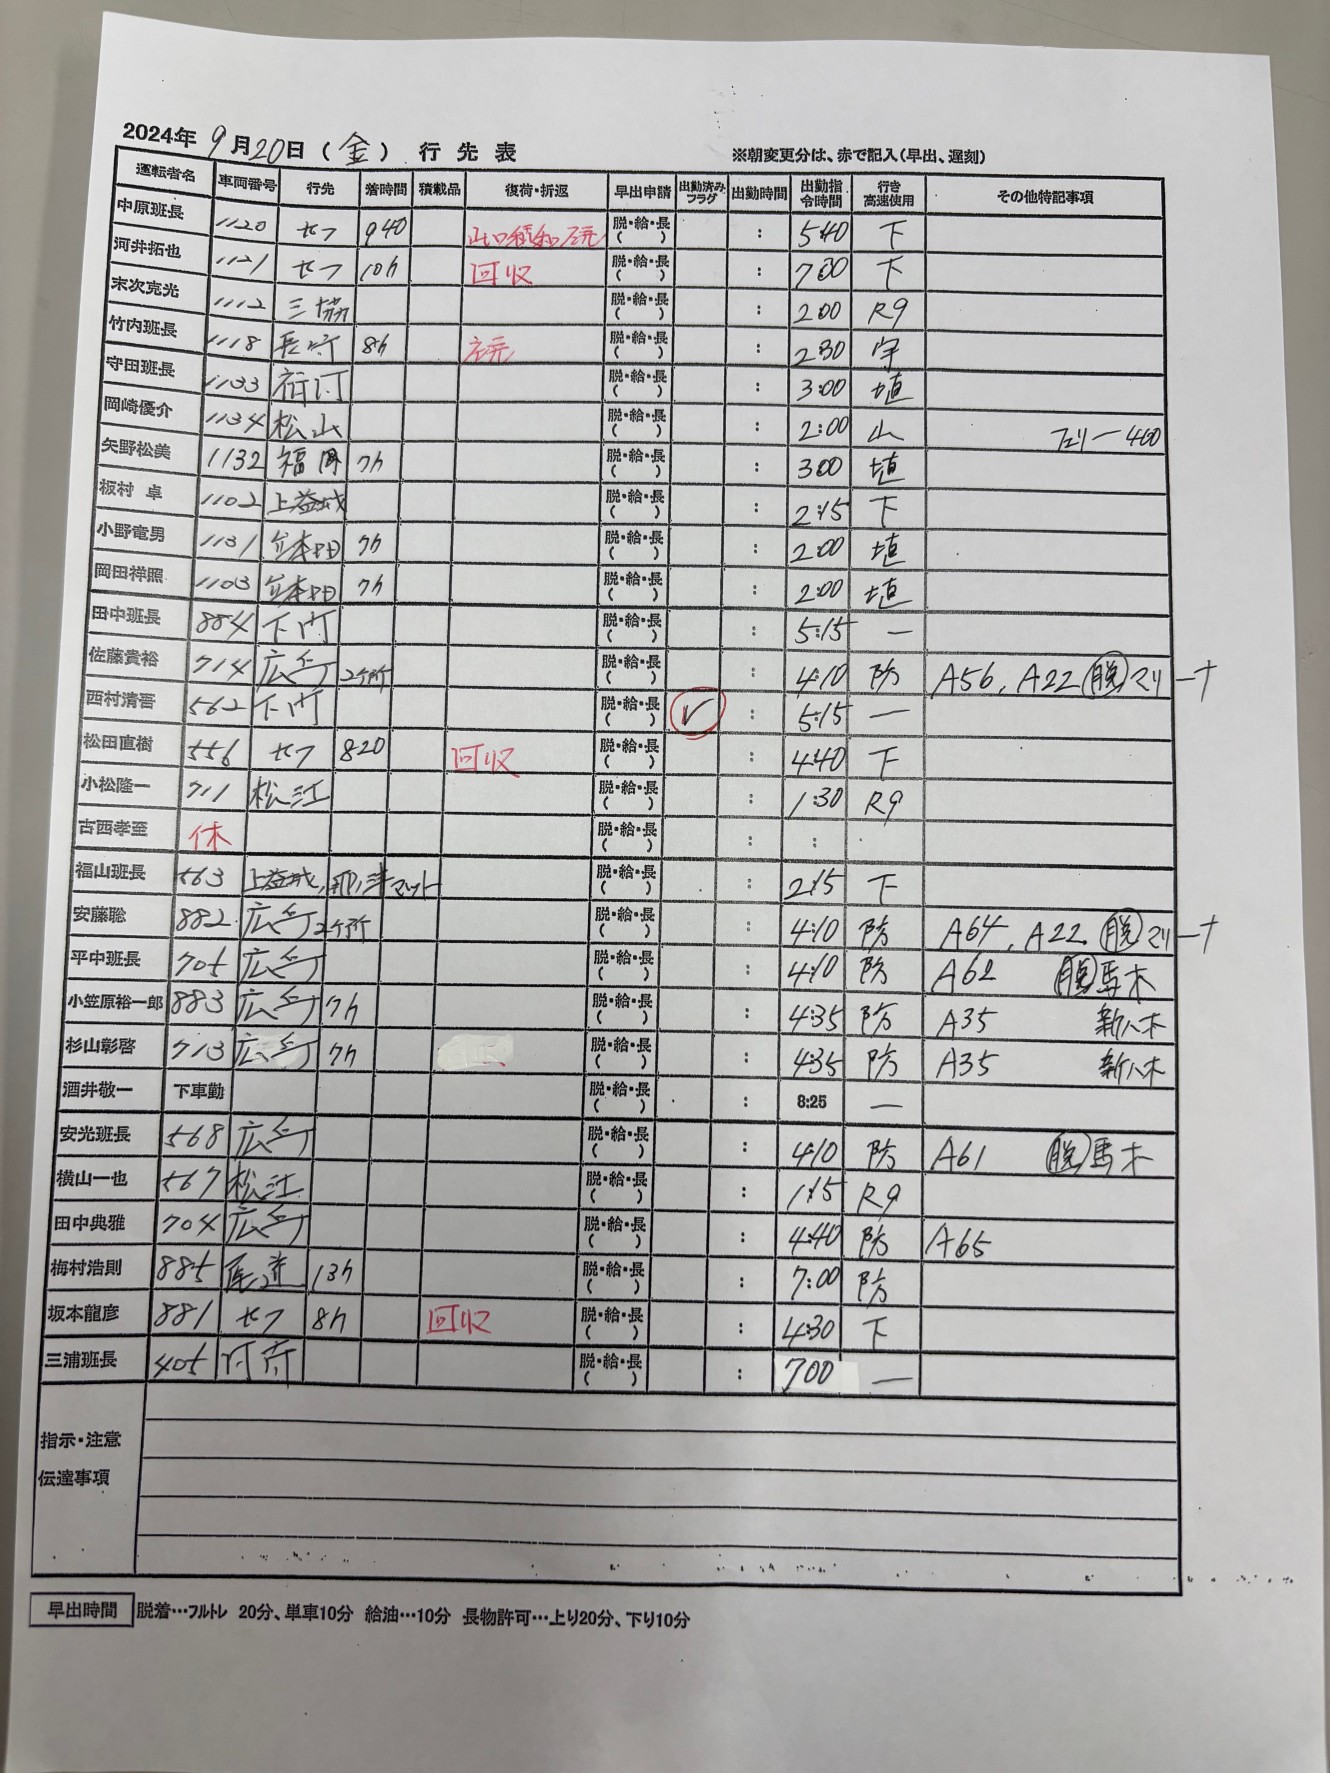 2024年 9月20日(金) 行先表 ※朝変更分は、赤で記入(早出、遅刻)
運転者名 車両番号 行先 着時間 積載品 復荷・折返 早出申請 出勤済みフラグ 出勤時間 出勤指令時間 行き高速使用 その他特記事項
中原班長 1120 セフ 940 脱・給・長( ) : 5:40 下
河井拓也 1121 セフ 10h 回収 脱・給・長( ) : 7:00 下
末次克光 1112 三協 脱・給・長( ) : 2:00 R9
竹内班長 1118 8h 脱・給・長( ) : 2:30 宇
守田班長 1133 脱・給・長( ) : 3:00 埴
岡崎優介 1134 松山 脱・給・長( ) : 2:00 山 フェリー460
矢野松美 1132 福岡 7h 脱・給・長( ) : 3:00 埴
板村 卓 1102 上益城 脱・給・長( ) : 2:15 下
小野竜男 1131 7h 脱・給・長( ) : 2:00 埴
岡田祥照 1103 7h 脱・給・長( ) : 2:00 埴
田中班長 884 下門 脱・給・長( ) : 5:15 ー
佐藤貴裕 714 広島 2ヶ所 脱・給・長( ) : 4:10 防 A56、A22 脱 マリーナ
西村清吾 562 下門 脱・給・長( ) ✓ : 5:15 ー
松田直樹 556 セフ 820 回収 脱・給・長( ) : 4:40 下
小松隆一 711 松江 脱・給・長( ) : 1:30 R9
古西孝至 休 脱・給・長( ) : :
福山班長 563 上益城、 マット 脱・給・長( ) : 2:15 下
安藤聡 882 広島 2ヶ所 脱・給・長( ) : 4:10 防 A64、A22 脱 マリーナ
平中班長 705 広島 脱・給・長( ) : 4:10 防 A62 脱 馬木
小笠原裕一郎 883 広島 7h 脱・給・長( ) : 4:35 防 A35 新八木
杉山彰啓 713 広島 7h 脱・給・長( ) : 4:35 防 A35 新八木
酒井敬一 下車勤 脱・給・長( ) : 8:25 ー
安光班長 568 広島 脱・給・長( ) : 4:10 防 A61 脱 馬木
横山一也 567 松江 脱・給・長( ) : 1:15 R9
田中典雅 704 広島 脱・給・長( ) : 4:40 防 A65
梅村浩則 885 尾道 13h 脱・給・長( ) : 7:00 防
坂本龍彦 881 セフ 8h 回収 脱・給・長( ) : 4:30 下
三浦班長 405 防府 脱・給・長( ) : 700 ー
指示・注意
伝達事項
早出時間 脱着…フルトレ 20分、単車10分 給油…10分 長物許可…上り20分、下り10分